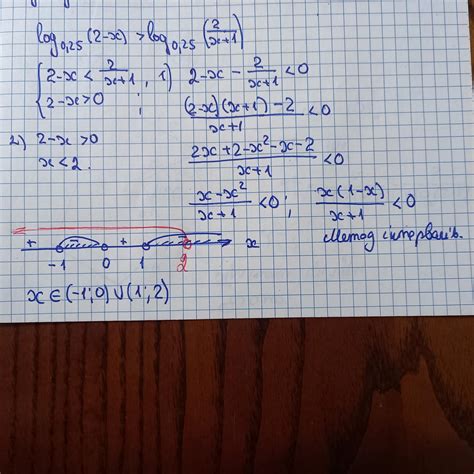 log₀,₂₅(2-x) > log₀,₂₅(2/(x+1))
{ 2-x < 2/(x+1) , 1) 2-x - 2/(x+1) < 0
{ 2-x > 0 ; ((2-x)(x+1)-2)/(x+1) < 0
2) 2-x > 0
x < 2. (2x+2-x²-x-2)/(x+1) < 0
(x-x²)/(x+1) < 0 ; x(1-x)/(x+1) < 0
Метод інтервалів.
+ - + - x
-1 0 1 2
x ∈ (-1; 0) ∪ (1; 2)